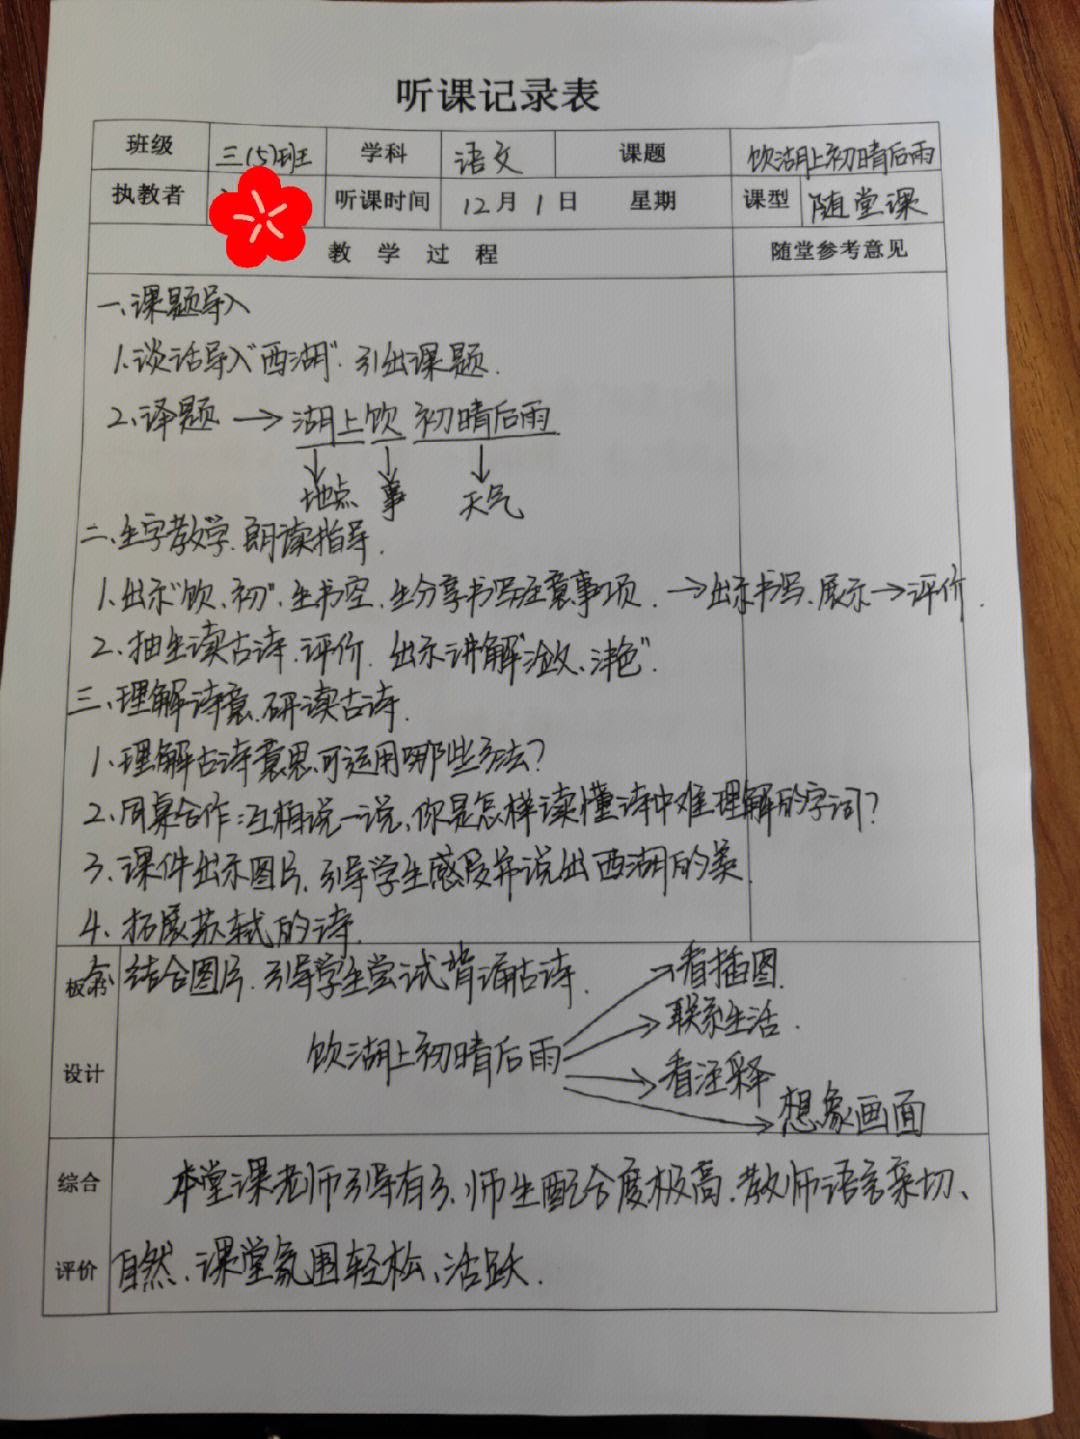 听课记录表
班级 三(5)班 学科 语文 课题 饮湖上初晴后雨
执教者 听课时间 12月1日 星期 课型 随堂课
教学过程 随堂参考意见
一、课题导入
1.谈话导入"西湖".引出课题.
2.译题 → 湖上饮 初晴后雨
地点 事 天气
二、生字教学.朗读指导.
1.出示"饮、初".生书空.生分享书写注意事项.→出示书写.展示→评价.
2.抽生读古诗.评价.出示讲解"潋、浓".
三、理解诗意.研读古诗.
1.理解古诗意思,可运用哪些方法?
2.同桌合作:互相说一说、你是怎样读懂诗中难理解的字词?
3.课件出示图片.引导学生感受并说出西湖的美.
4.拓展苏轼的诗.
结合图片.引导学生尝试背诵古诗.
板书
设计
饮湖上初晴后雨
看插图.
联系生活.
看注释
想象画面
综合
评价
本堂课老师引导有方.师生配合度极高.教师语言亲切、
自然、课堂氛围轻松、活跃.